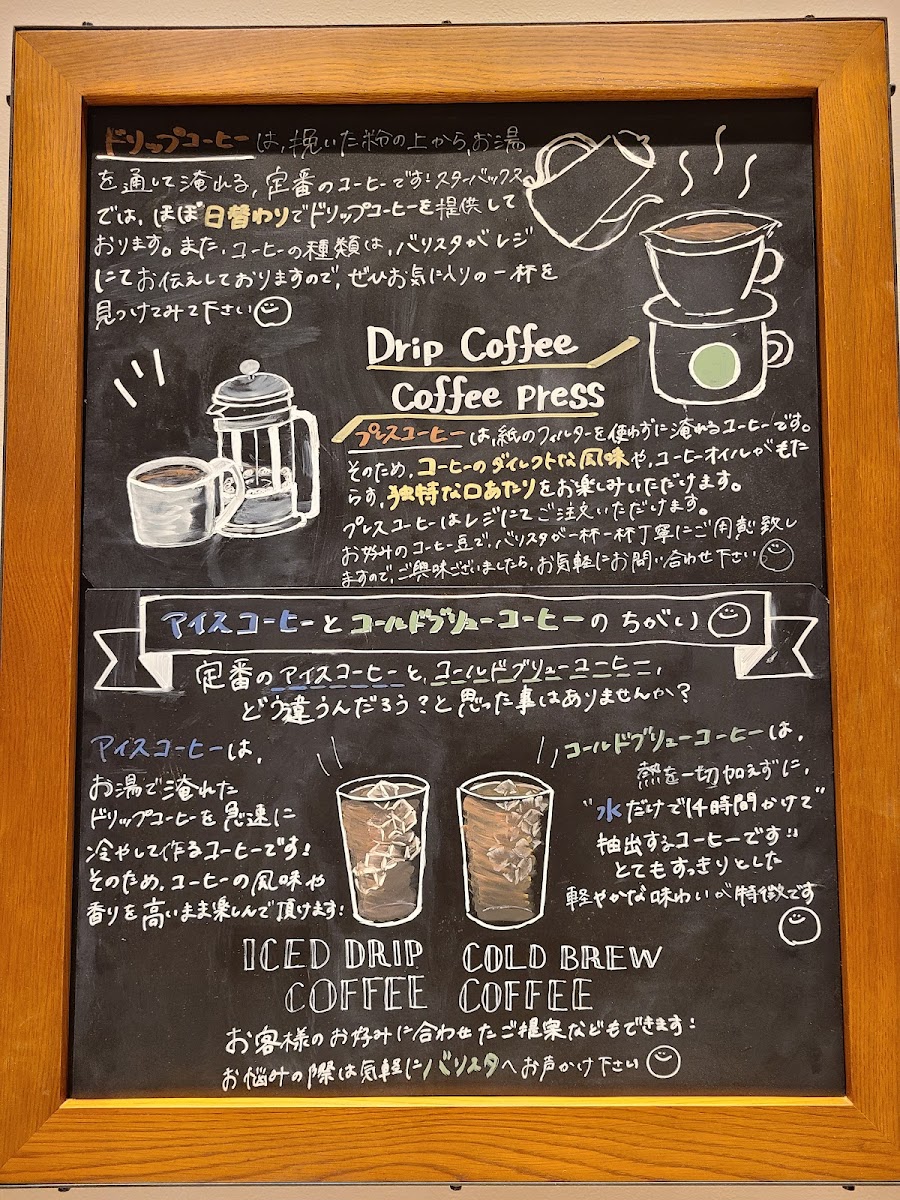 ドリップコーヒーは、挽いた粉の上から、お湯
を通して淹れる、定番のコーヒーです！スターバックス
では、ほぼ日替わりでドリップコーヒーを提供して
おります。また、コーヒーの種類は、バリスタがレジ
にてお伝えしておりますので、ぜひお気に入りの一杯を
見つけてみて下さい
Drip Coffee
Coffee Press
プレスコーヒーは、紙のフィルターを使わずに淹れるコーヒーです。
そのため、コーヒーのダイレクトな風味や、コーヒーオイルがもた
らす、独特な口あたりをお楽しみいただけます。
プレスコーヒーはレジにてご注文いただけます。
お好みのコーヒー豆で、バリスタが一杯一杯丁寧にご用意致し
ますので、ご興味ございましたら、お気軽にお問い合わせ下さい
アイスコーヒーとコールドブリューコーヒーのちがい
定番のアイスコーヒーと、コールドブリューコーヒー、
どう違うんだろう？と思った事はありませんか？
アイスコーヒーは、
お湯で淹れた
ドリップコーヒーを急速に
冷やして作るコーヒーです！
そのため、コーヒーの風味や
香りを高いまま楽しんで頂けます！
コールドブリューコーヒーは、
熱を一切加えずに、
"水だけで14時間かけて"
抽出するコーヒーです!!
とてもすっきりとした
軽やかな味わいが特徴です
ICED DRIP
COFFEE
COLD BREW
COFFEE
お客様のお好みに合わせたご提案などもできます！
お悩みの際は気軽にバリスタへお声かけ下さい